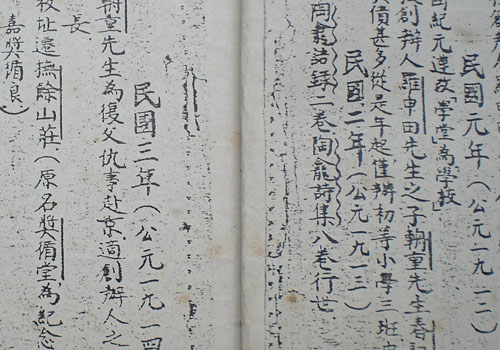 民國元年（公元一九一二）
國紀元遵改「學堂」為學校」
創辦人羅申田先生之子翱童先生春
債甚多從是年起僅辦初等小學三班
民國二年（公元一九一三）
陶龕語錄二卷陶龕詩集八卷行世
民國三年（公元一九一四
翱童先生為復父仇事赴京適創辦人之
長
校址遷撫餘山莊，（原名獎循堂，為紀念
嘉獎循良）